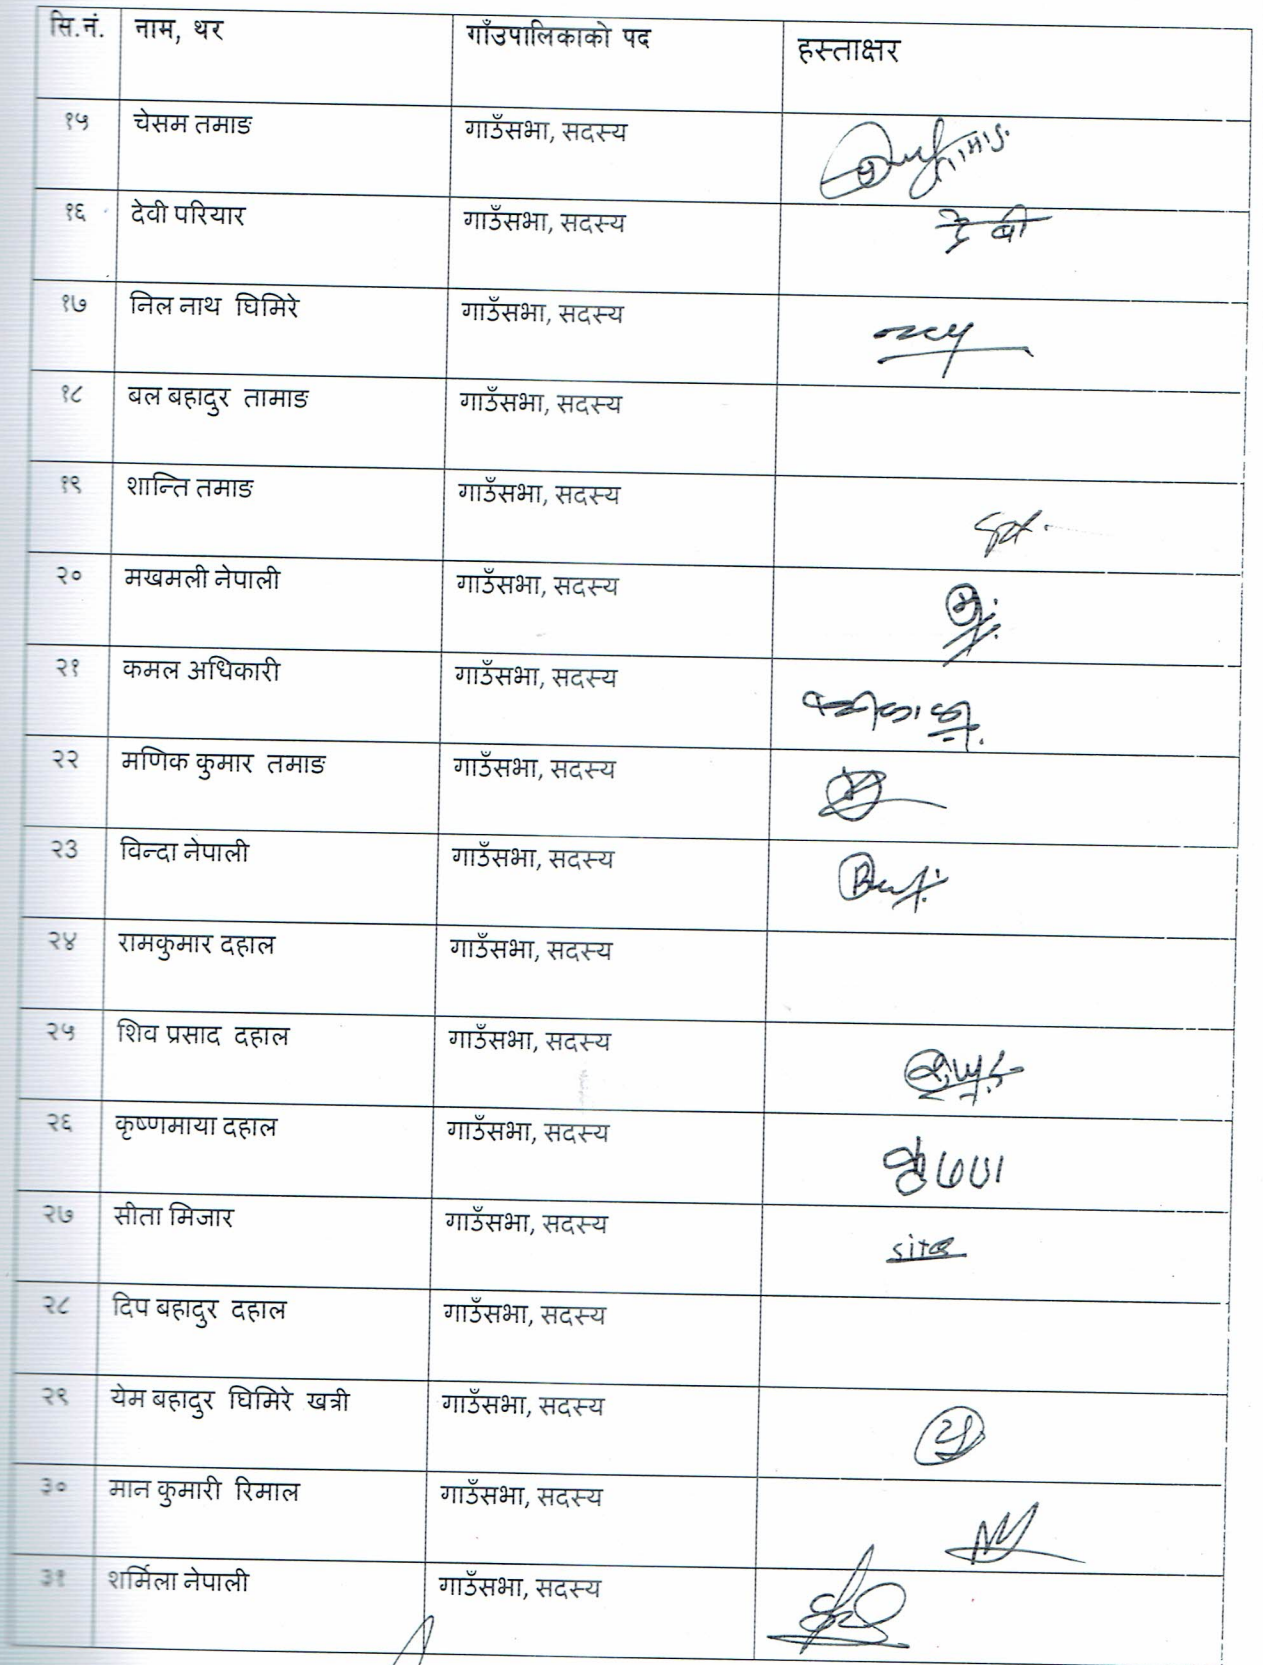 सि.नं. नाम, थर गाँउपालिकाको पद हस्ताक्षर
१५ चेसम तमाङ गाउँसभा, सदस्य
१६ देवी परियार गाउँसभा, सदस्य देवी
१७ निल नाथ घिमिरे गाउँसभा, सदस्य
१८ बल बहादुर तामाङ गाउँसभा, सदस्य
१९ शान्ति तमाङ गाउँसभा, सदस्य
२० मखमली नेपाली गाउँसभा, सदस्य
२१ कमल अधिकारी गाउँसभा, सदस्य
२२ मणिक कुमार तमाङ गाउँसभा, सदस्य
२३ विन्दा नेपाली गाउँसभा, सदस्य
२४ रामकुमार दहाल गाउँसभा, सदस्य
२५ शिव प्रसाद दहाल गाउँसभा, सदस्य
२६ कृष्णमाया दहाल गाउँसभा, सदस्य
२७ सीता मिजार गाउँसभा, सदस्य sita
२८ दिप बहादुर दहाल गाउँसभा, सदस्य
२९ येम बहादुर घिमिरे खत्री गाउँसभा, सदस्य
३० मान कुमारी रिमाल गाउँसभा, सदस्य
३१ शर्मिला नेपाली गाउँसभा, सदस्य